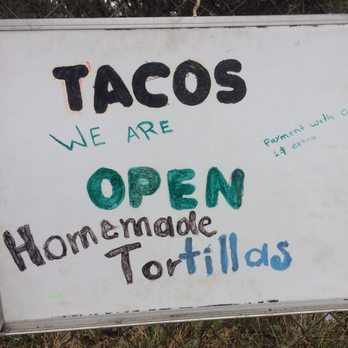 TACOS
WE ARE
Payment with
1$ extra
OPEN
Homemade
Tortillas